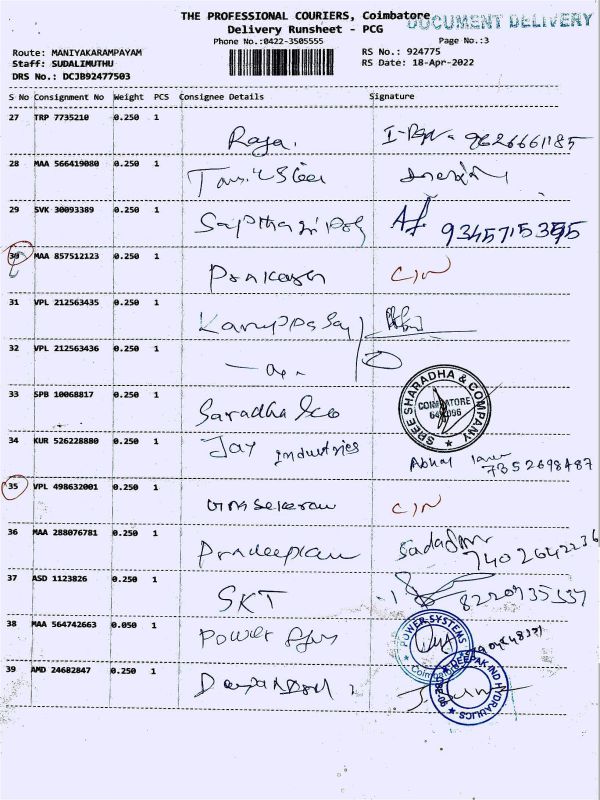 THE PROFESSIONAL COURIERS, Coimbatore
DOCUMENT DELIVERY
Delivery Runsheet - PCG
Phone No.:0422-3505555
Page No.:3
Route: MANIYAKARAMPAYAM
RS No.: 924775
Staff: SUDALIMUTHU
RS Date: 18-Apr-2022
DRS No.: DCJB92477503
S No Consignment No Weight PCS Consignee Details Signature
27 TRP 7735210 0.250 1
Raja. 9626661185
28 MAA 566419080 0.250 1
29 SVK 30093389 0.250 1
9345715395
30 MAA 857512123 0.250 1
Prakash C/N
31 VPL 212563435 0.250 1
32 VPL 212563436 0.250 1
33 SPB 10068817 0.250 1
Saradha &co
SREE SHARADHA & COMPANY
COIMBATORE
34 KUR 526228880 0.250 1
Jay industries
7352698487
35 VPL 498632001 0.250 1
C/N
36 MAA 288076781 0.250 1
7402642236
37 ASD 1123826 0.250 1
SKT
38 MAA 564742663 0.050 1
Power
POWER SYSTEMS
39 AMD 24682847 0.250 1
DEEPAK IND HYDRAULICS